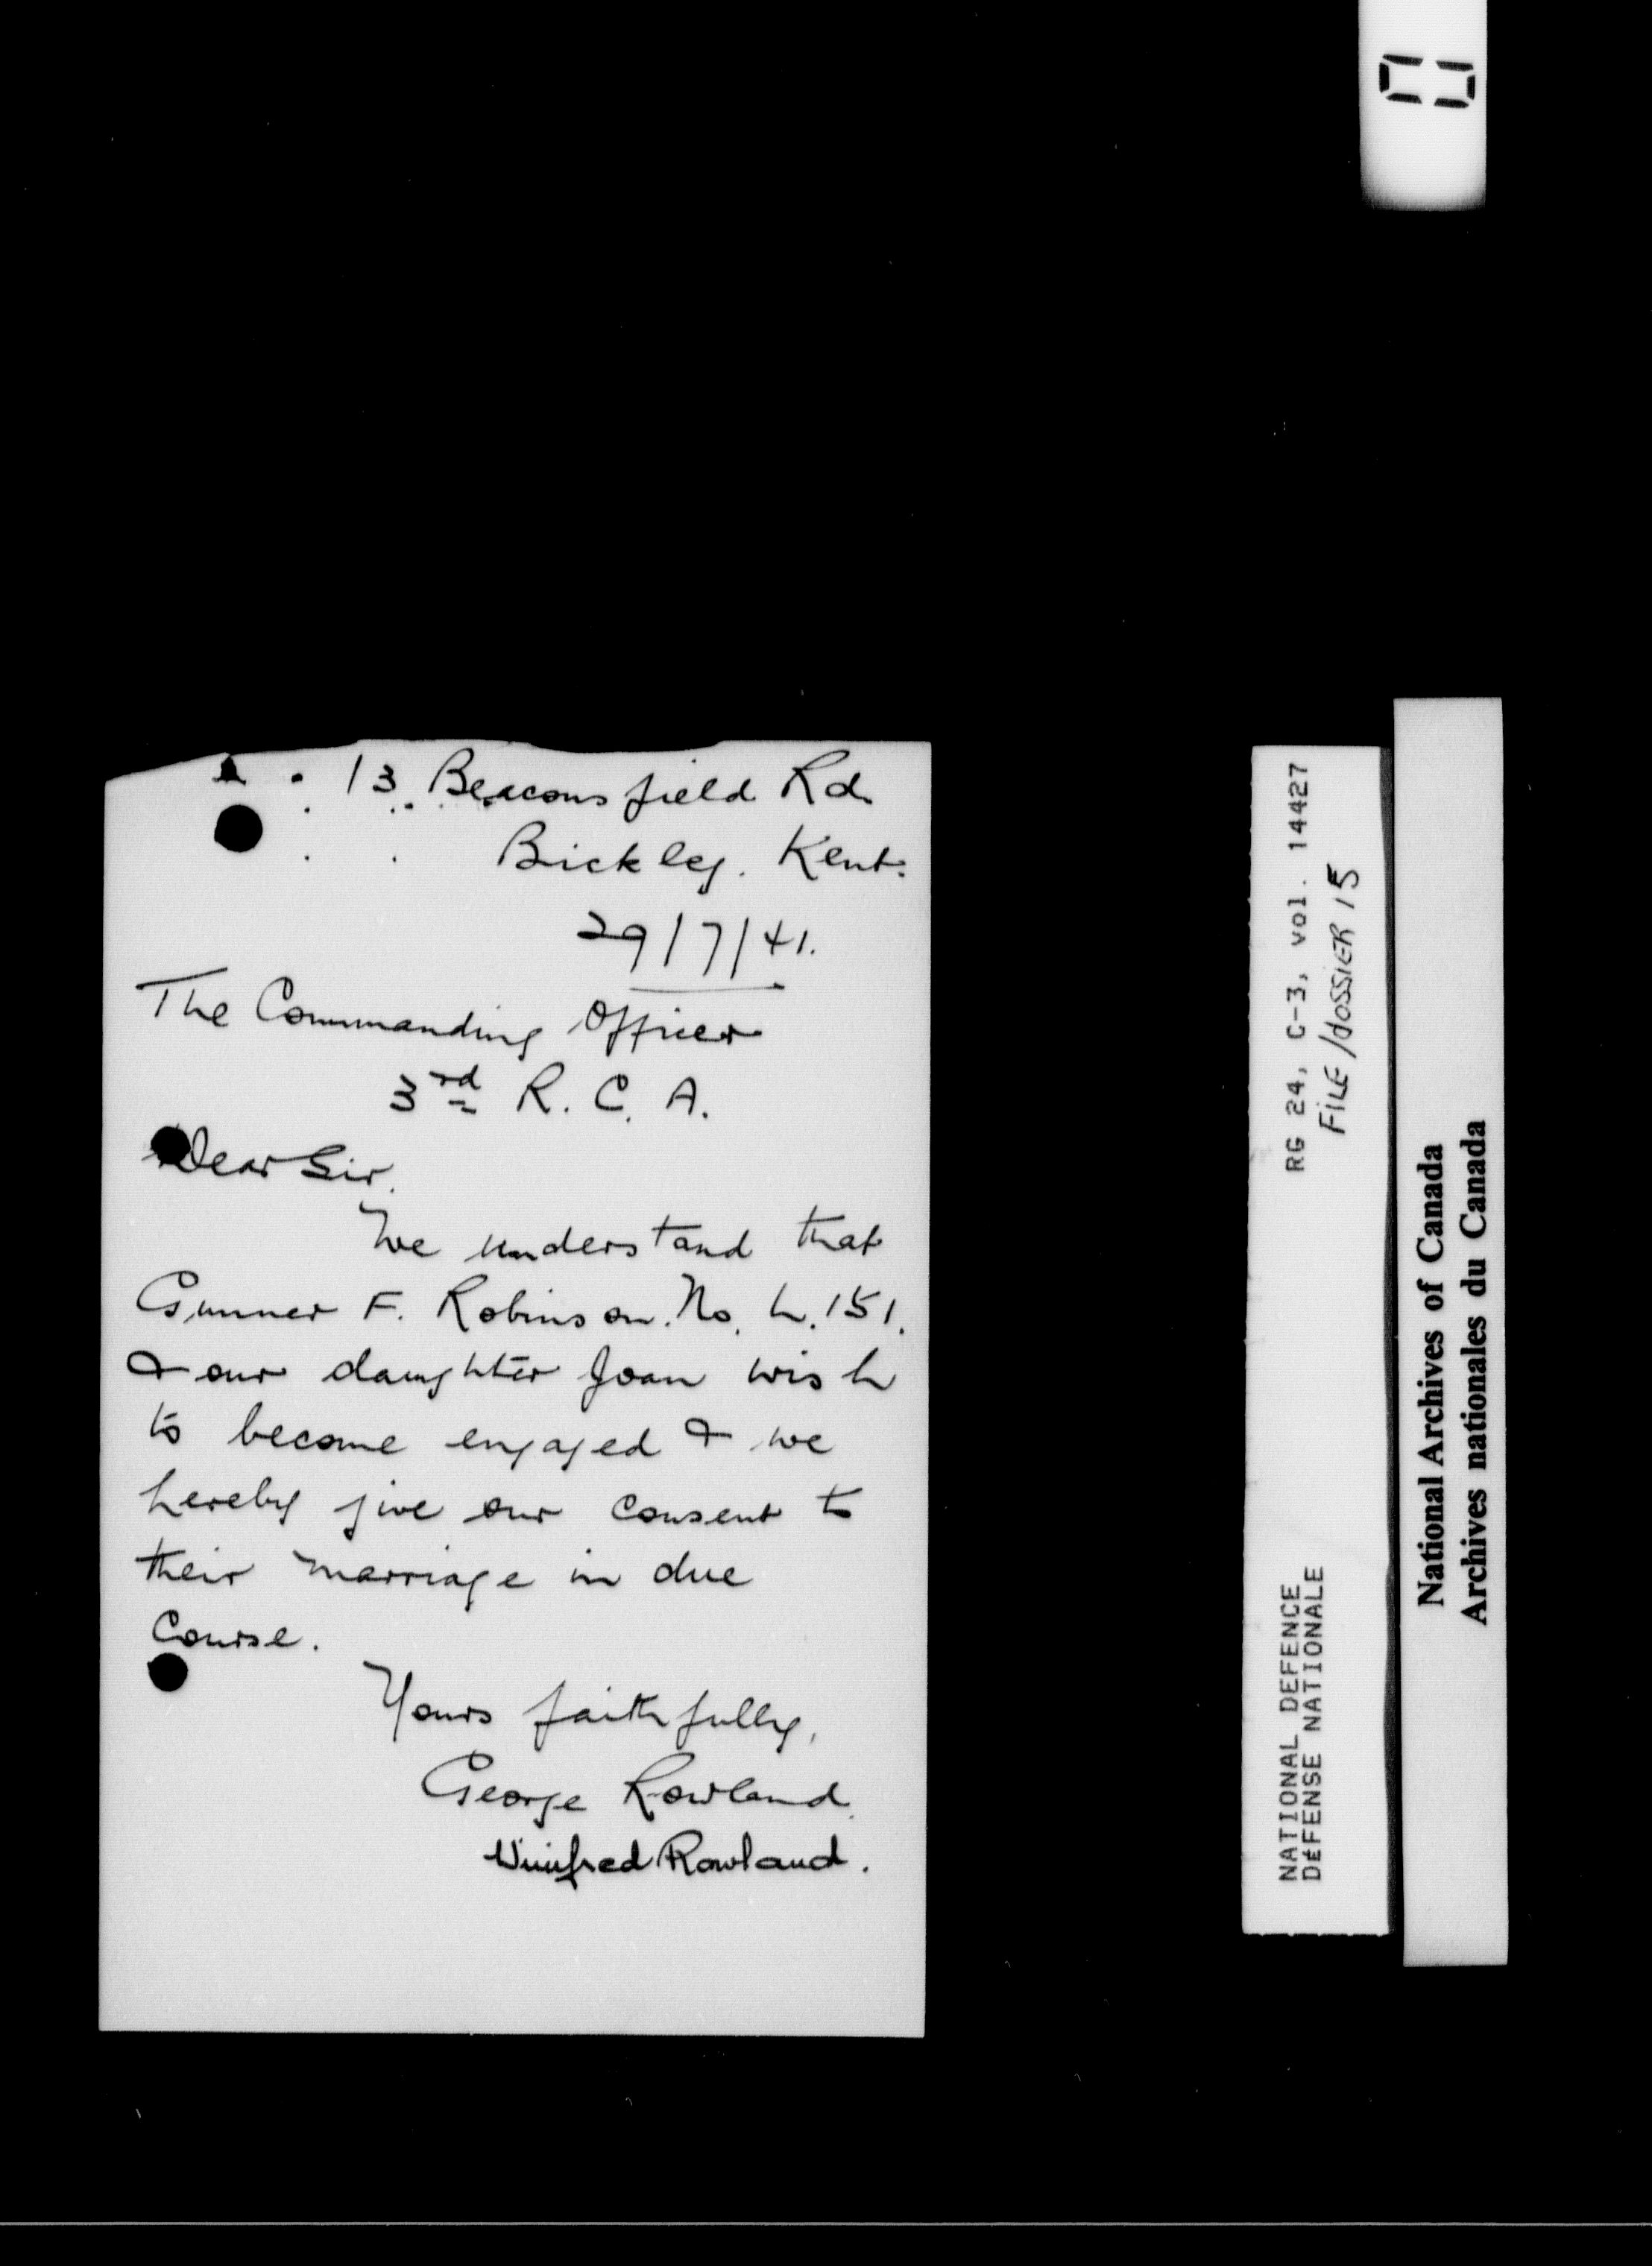 13 Beaconsfield Rd.
Bickley. Kent.
29/7/41.
The Commanding Officer
3rd R. C. A.
Dear Sir.
We understand that
Gunner F. Robinson. No. L. 151.
& our daughter Joan wish
to become engaged & we
hereby give our consent to
their marriage in due
course.
Yours faithfully,
George Rowland.
Winifred Rowland.
RG 24, C-3, vol. 14427
FILE/DOSSIER 15
NATIONAL DEFENCE
DÉFENSE NATIONALE
National Archives of Canada
Archives nationales du Canada